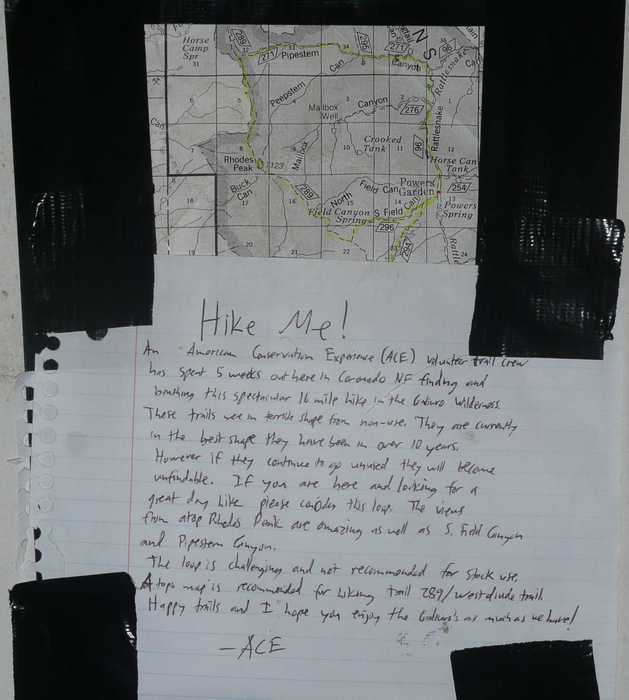 Horse
Camp
Spr
31
289
271
Pipestem
34
295
271
Canyon
N S
96
Rattlesnake
Can
6
5
Peepstem
Can
Mailbox
Well
3
Canyon
2
276
1
Can
Crooked
Tank
7
8
Mailbox
10
11
96
Rattlesnake
12
Rhodes
Peak
7123
Horse Can
Tank
Buck
Can
18
17
16
289
North
Field Can
15
14
Powers
Garden
254
13
Field Canyon
Spring
S Field Can
Powers
Spring
296
19
20
21
22
294
24
Rattle
Hike Me!
An American Conservation Experience (ACE) volunteer trail crew
has spent 5 weeks out here in Coronado NF finding and
brushing this spectacular 16 mile hike in the Galiuro Wilderness.
These trails were in terrible shape from non-use. They are currently
in the best shape they have been in over 10 years.
However if they continue to go unused they will become
unfindable. If you are here and looking for a
great day hike please consider this loop. The views
from atop Rhodes Peak are amazing as well as S. Field Canyon
and Pipestem Canyon.
The loop is challenging and not recommended for stock use.
A topo map is recommended for hiking trail 289/West divide trail.
Happy trails and I hope you enjoy the Galiuro's as much as we have!
- ACE